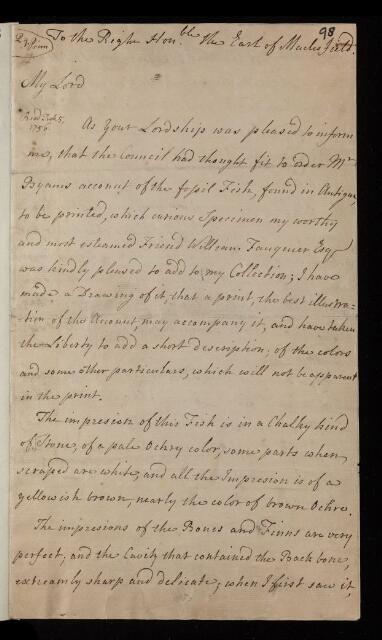 98
To the Right Hon.ble the Earl of Macclesfield.
My Lord
Read Feb 5,
1756.
As Your Lordship was pleased to inform
me, that the Council had thought fit to order Mr
Byams account of the fossil Fish, found in Antigua,
to be printed, which curious Specimen my worthy
and most esteemed Friend William Fauquier Esqr
was kindly pleased to add to my Collection; I have
made a Drawing of it, that a print, the best illustra=
tion of the Account, may accompany it, and have taken
the Liberty to add a short description, of the colors
and some other particulars, which will not be apparent
in the print.
The impression of this Fish is in a Chalky kind
of Stone, of a pale Ochry color, some parts when
scraped are white, and all the Impression is of a
yellowish brown, nearly the color of brown Ochre.
The impressions of the Bones and Finns are very
perfect, and the Cavity that contained the Back bone,
extreamly sharp and delicate; when I first saw it,